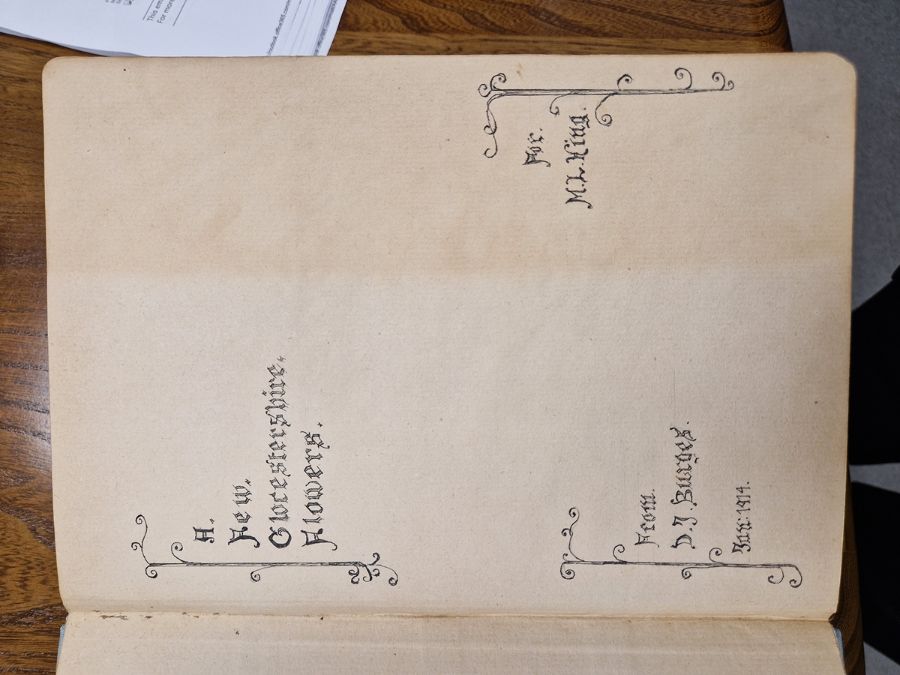 A.
Few.
Glocestershire.
Flowers.
For.
M.L.King.
From.
D.J.Burges.
Jan: 1914.